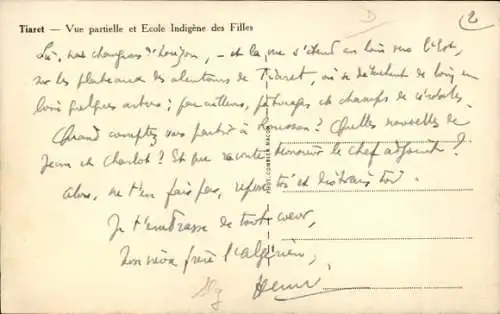 Tiaret — Vue partielle et Ecole Indigène des Filles
D
2
Ici, nous changeons d'horizon, – et la vue s'étend au loin vers l'Est,
sur les plateaux des alentours de Tiaret, où se détachent de loin en
loin quelques arbres ; par ailleurs, pâturages et champs de céréales.
Quand comptez vous partir à ? Quelles nouvelles de
Jean et Charlot ? Et que raconte monsieur le chef adjoint ?
Alors, ne t'en fais pas, repose toi et distrais toi.
Je t'embrasse de tout cœur,
Ton vieux frère l'algérien,
Henri
PHOT. COMBIER MACON